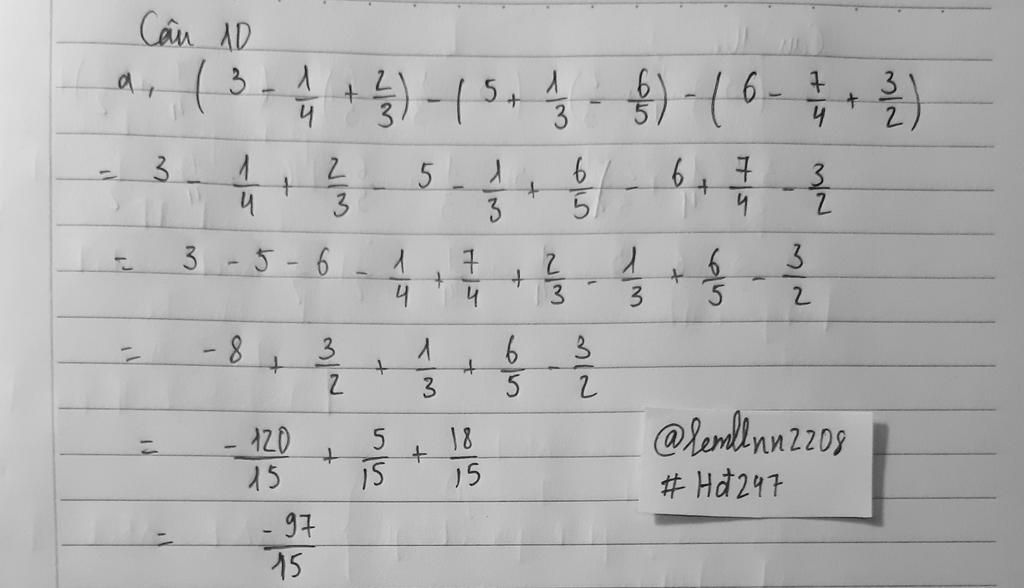 Câu 10
a, (3 - 1/4 + 2/3) - (5 + 1/3 - 6/5) - (6 - 7/4 + 3/2)
= 3 - 1/4 + 2/3 - 5 - 1/3 + 6/5 - 6 + 7/4 - 3/2
= 3 - 5 - 6 - 1/4 + 7/4 + 2/3 - 1/3 + 6/5 - 3/2
= -8 + 3/2 + 1/3 + 6/5 - 3/2
= -120/15 + 5/15 + 18/15
= -97/15
# Hđ247